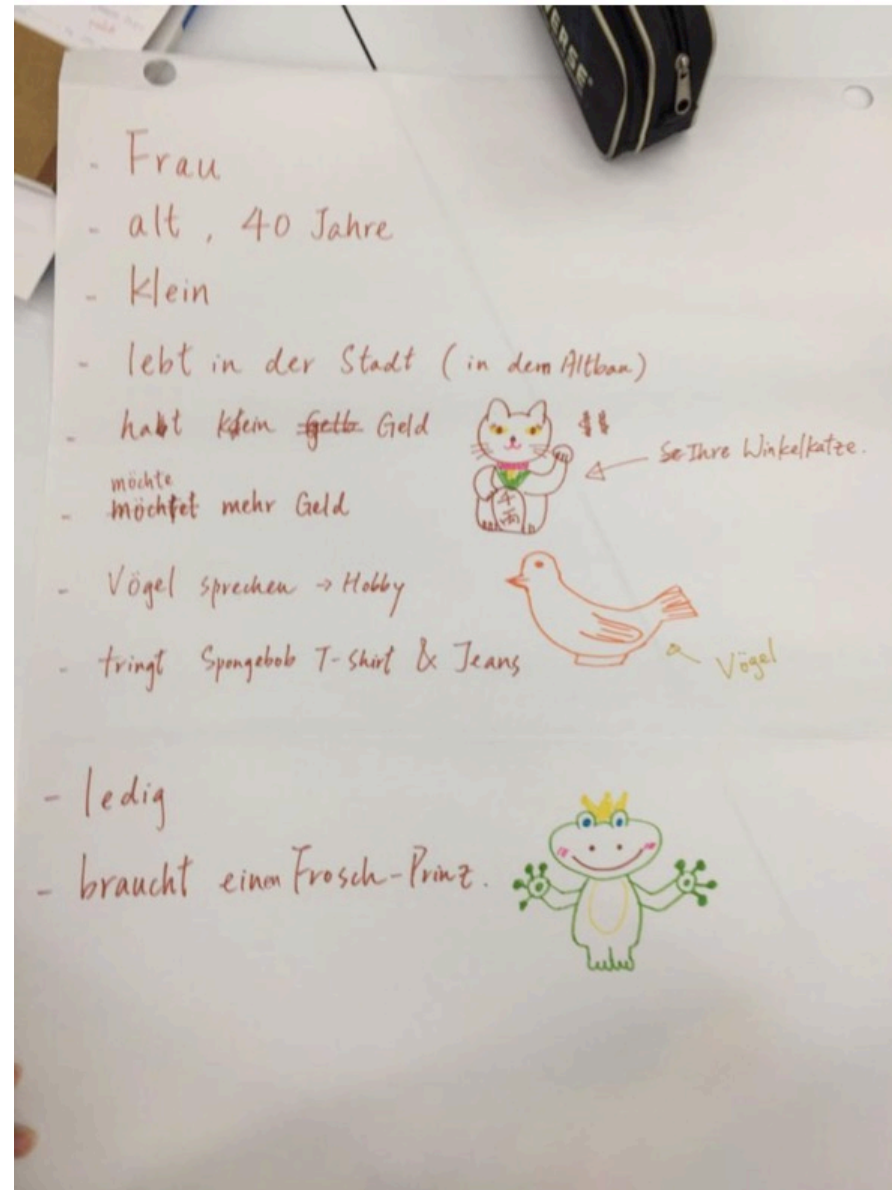 ERSE
- Frau
- alt, 40 Jahre
- klein
- lebt in der Stadt (in dem Altbau)
- hat kein Geld
$$
Ihre Winkelkatze.
千両
möchte
- mehr Geld
- Vögel sprechen → Hobby
- tringt Spongebob T-shirt & Jeans
Vögel
- ledig
- braucht einen Frosch-Prinz.